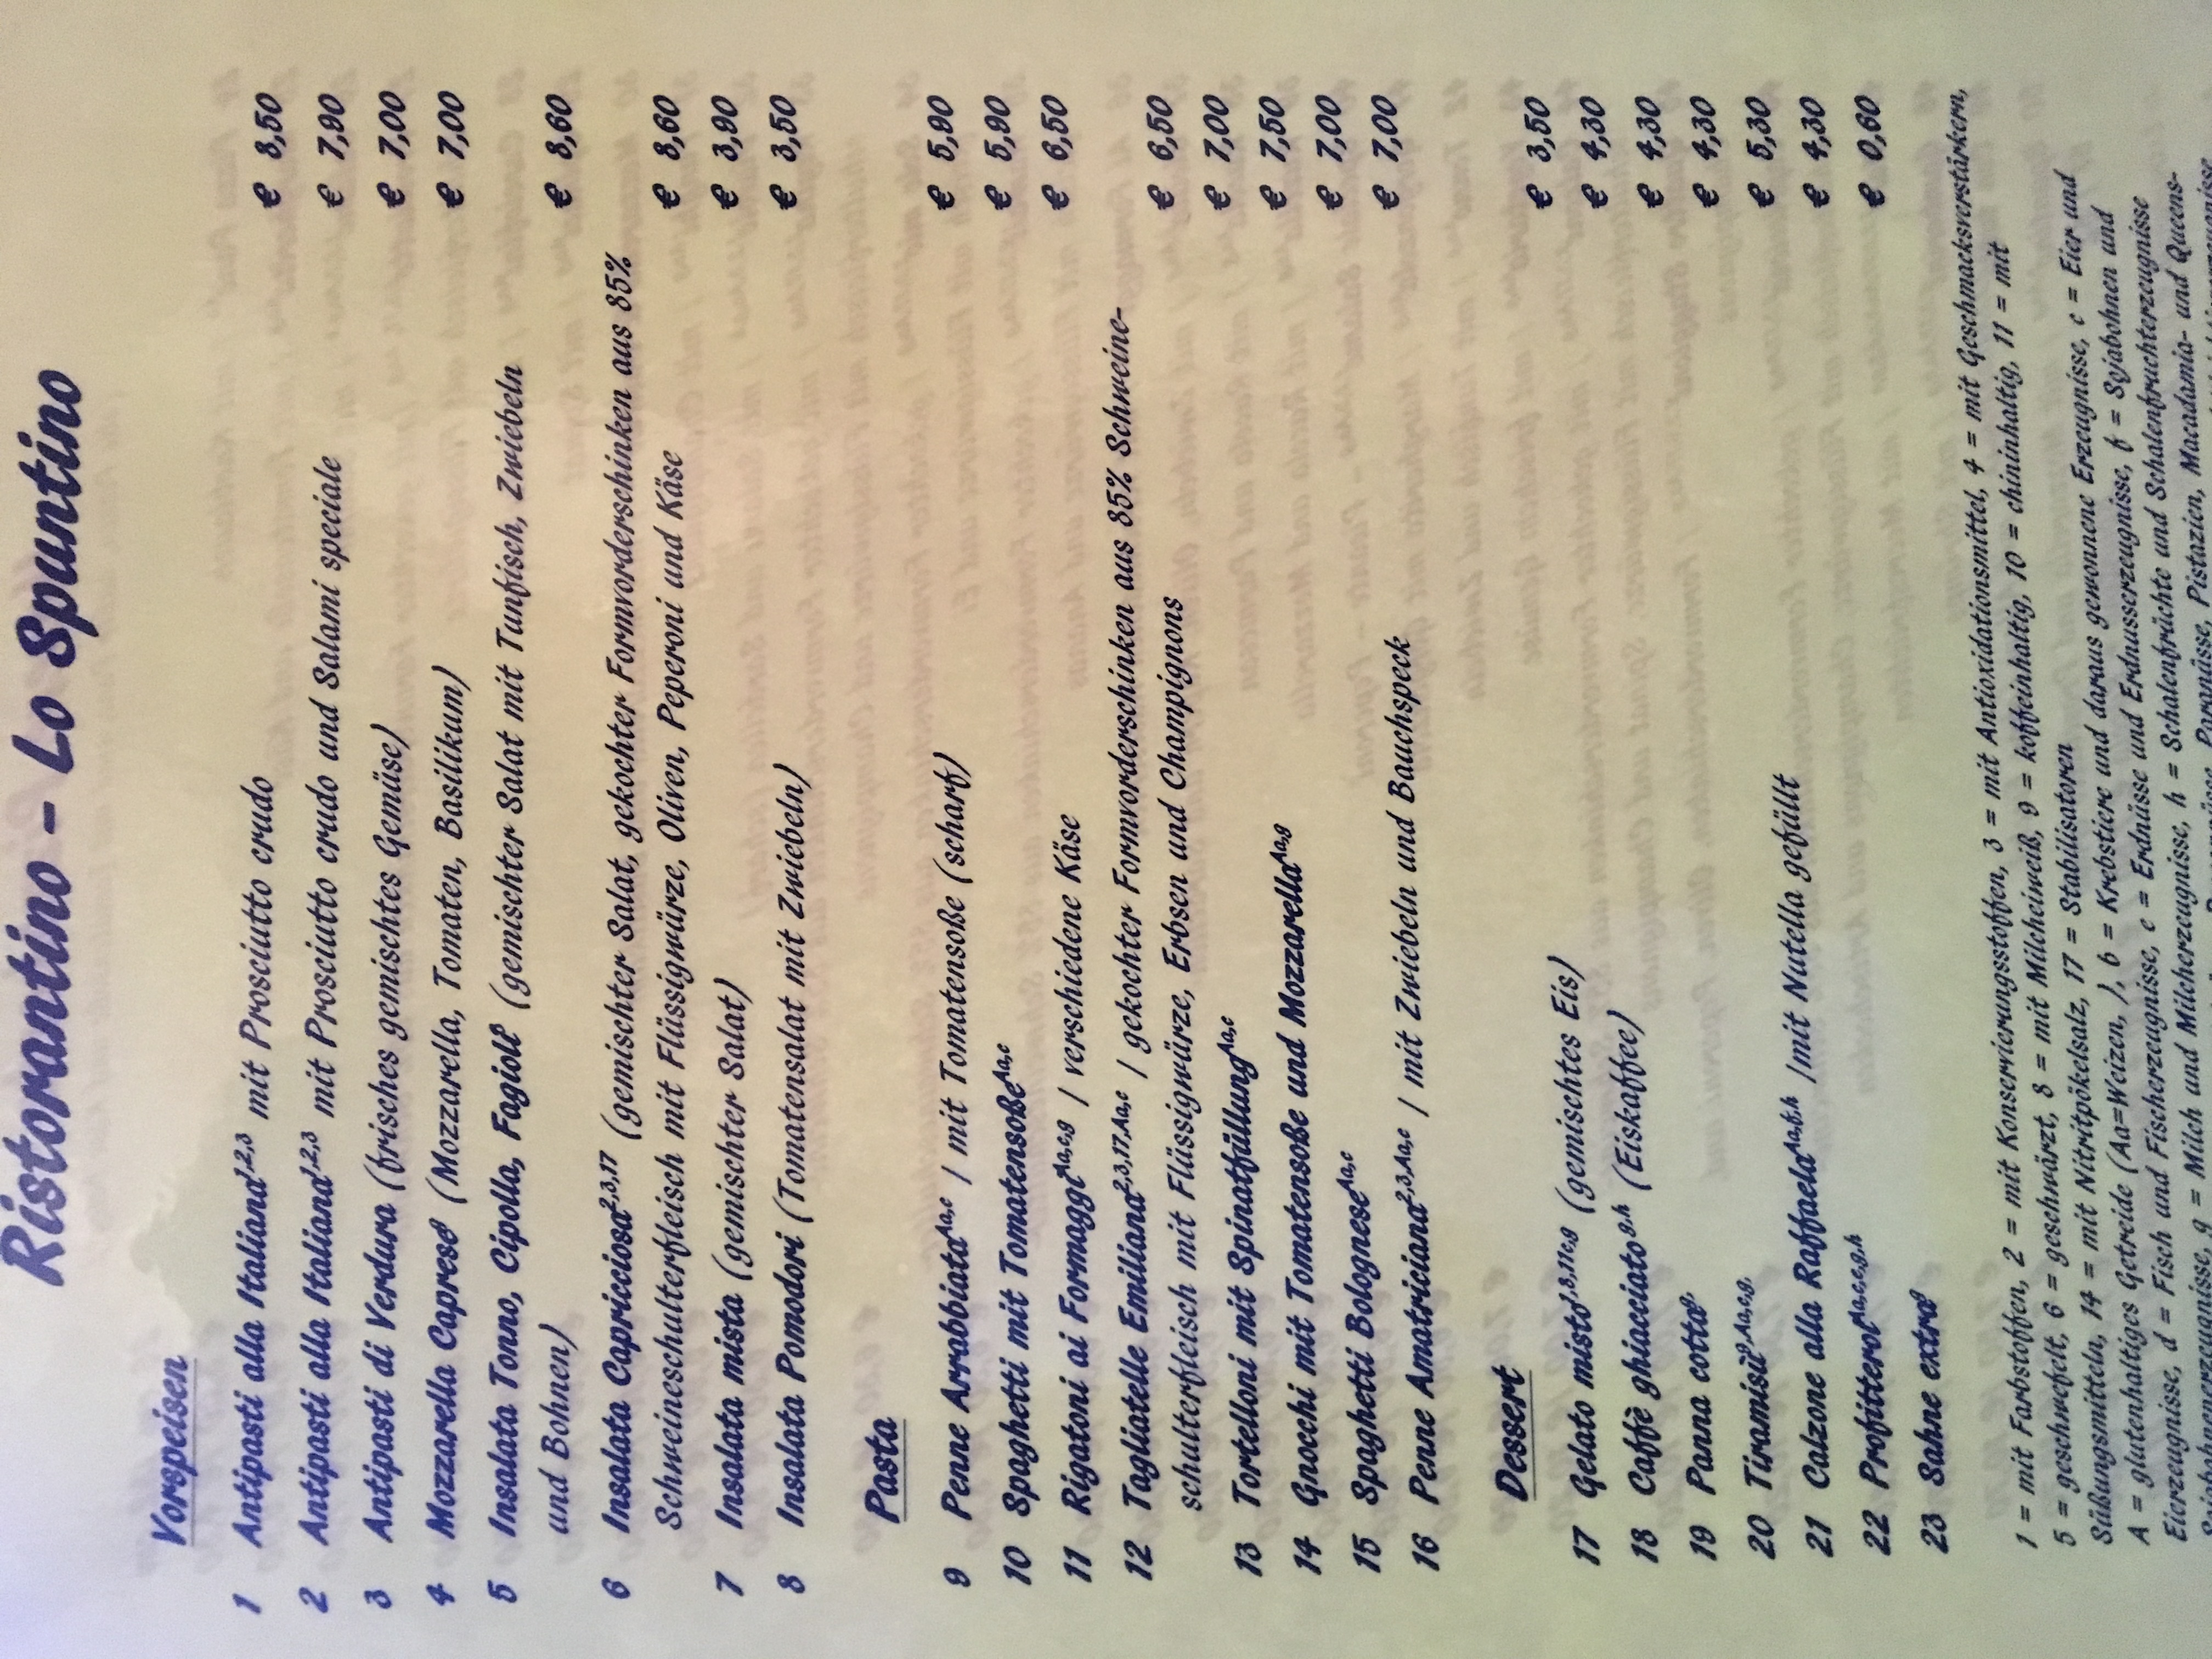 Ristorantino - Lo Spuntino
Vorspeisen
1 Antipasti alla Italiana1,2,3 mit Prosciutto crudo € 8,50
2 Antipasti alla Italiana1,2,3 mit Prosciutto crudo und Salami speciale € 7,90
3 Antipasti di Verdura (frisches gemischtes Gemüse) € 7,00
4 Mozzarella Capreseg (Mozzarella, Tomaten, Basilikum) € 7,00
5 Insalata Tonno, Cipolla, Fagioli (gemischter Salat mit Tunfisch, Zwiebeln
und Bohnen) € 8,60
6 Insalata Capricciosa2,3,17 (gemischter Salat, gekochter Formvorderschinken aus 85%
Schweineschulterfleisch mit Flüssigwürze, Oliven, Peperoni und Käse € 8,60
7 Insalata mista (gemischter Salat) € 3,90
8 Insalata Pomodori (Tomatensalat mit Zwiebeln) € 3,50
Pasta
9 Penne ArrabbiataAa,c / mit Tomatensoße (scharf) € 5,90
10 Spaghetti mit TomatensoßeAa,c € 5,90
11 Rigatoni ai FormaggiAa,c,g / verschiedene Käse € 6,50
12 Tagliatelle Emiliana2,3,17,Aa,c / gekochter Formvorderschinken aus 85% Schweine-
schulterfleisch mit Flüssigwürze, Erbsen und Champignons € 6,50
13 Tortelloni mit SpinatfüllungAa,c € 7,00
14 Gnocchi mit Tomatensoße und MozzarellaAa,g € 7,50
15 Spaghetti BologneseAa,c € 7,00
16 Penne Amatriciana2,3,Aa,c / mit Zwiebeln und Bauchspeck € 7,00
Dessert
17 Gelato misto1,8,11c,g (gemischtes Eis) € 3,50
18 Caffè ghiacciato9,h (Eiskaffee) € 4,30
19 Panna cottag, € 4,30
20 Tiramisù9,Aa,c,g, € 4,30
21 Calzone alla RaffaelaAa,f,h /mit Nutella gefüllt € 5,30
22 ProfitterolAa,c,e,g,h € 4,30
23 Sahne extrag € 0,60
1 = mit Farbstoffen, 2 = mit Konservierungsstoffen, 3 = mit Antioxidationsmittel, 4 = mit Geschmacksverstärkern,
5 = geschwefelt, 6 = geschwärzt, 8 = mit Milcheiweiß, 9 = koffeinhaltig, 10 = chininhaltig, 11 = mit
Süßungsmitteln, 14 = mit Nitritpökelsalz, 17 = Stabilisatoren
A = glutenhaltiges Getreide (Aa=Weizen, ), b = Krebstiere und daraus gewonnene Erzeugnisse, c = Eier und
Eierzeugnisse, d = Fisch und Fischerzeugnisse, e = Erdnüsse und Erdnusserzeugnisse, f = Sojabohnen und
g = Milch und Milcherzeugnisse, h = Schalenfrüchte und Schalenfruchterzeugnisse
Paranüsse, Pistazien, Macadamia- und Queens-